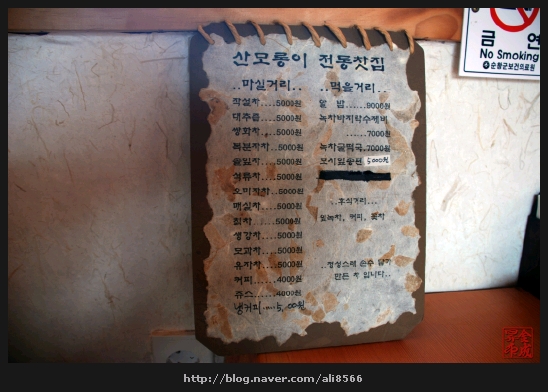 산모롱이 전통찻집
..마실거리..
작설차....5000원
대추즙....5000원
쌍화차....5000원
복분자차...5000원
솔잎차....5000원
석류차....5000원
오미자차...5000원
매실차....5000원
칡차.....5000원
생강차....5000원
모과차....5000원
유자차....5000원
커피.....4000원
쥬스.....4000원
냉커피.....5,000원
..먹을거리..
알 밥.....9000원
녹차바지락수제비
......7000원
녹차굴떡국..7000원
모시잎송편 5,000원
..후식거리..
잎녹차, 커피, 꽃차
..정성스레 손수 담가
만든 차 입니다..
금 연
No Smoking
순창군보건의료원
http://blog.naver.com/ali8566